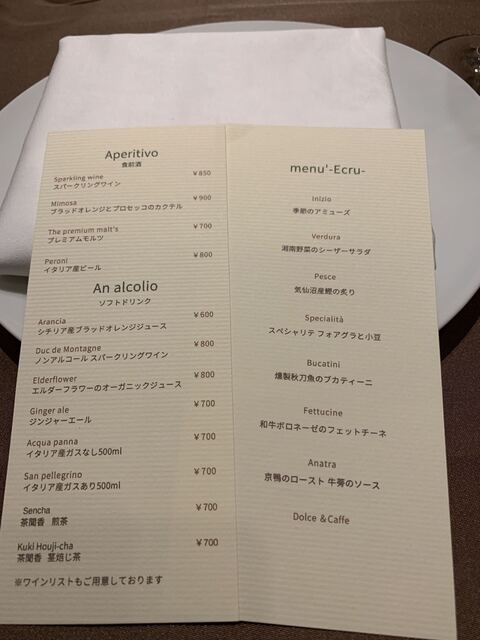 Aperitivo
食前酒
Sparkling wine ￥850
スパークリングワイン
Mimosa ￥900
ブラッドオレンジとプロセッコのカクテル
The premium malt's ￥700
プレミアムモルツ
Peroni ￥800
イタリア産ビール
An alcolio
ソフトドリンク
Arancia ￥600
シチリア産ブラッドオレンジジュース
Duc de Montagne ￥800
ノンアルコール スパークリングワイン
Elderflower ￥800
エルダーフラワーのオーガニックジュース
Ginger ale ￥700
ジンジャーエール
Acqua panna ￥700
イタリア産ガスなし500ml
San pellegrino ￥700
イタリア産ガスあり500ml
Sencha ￥700
茶聞香 煎茶
Kuki Houji-cha ￥700
茶聞香 茎焙じ茶
※ワインリストもご用意しております
menu'-Ecru-
Inizio
季節のアミューズ
Verdura
湘南野菜のシーザーサラダ
Pesce
気仙沼産鰹の炙り
Specialità
スペシャリテ フォアグラと小豆
Bucatini
燻製秋刀魚のブカティーニ
Fettucine
和牛ボロネーゼのフェットチーネ
Anatra
京鴨のロースト 牛蒡のソース
Dolce ＆Caffe